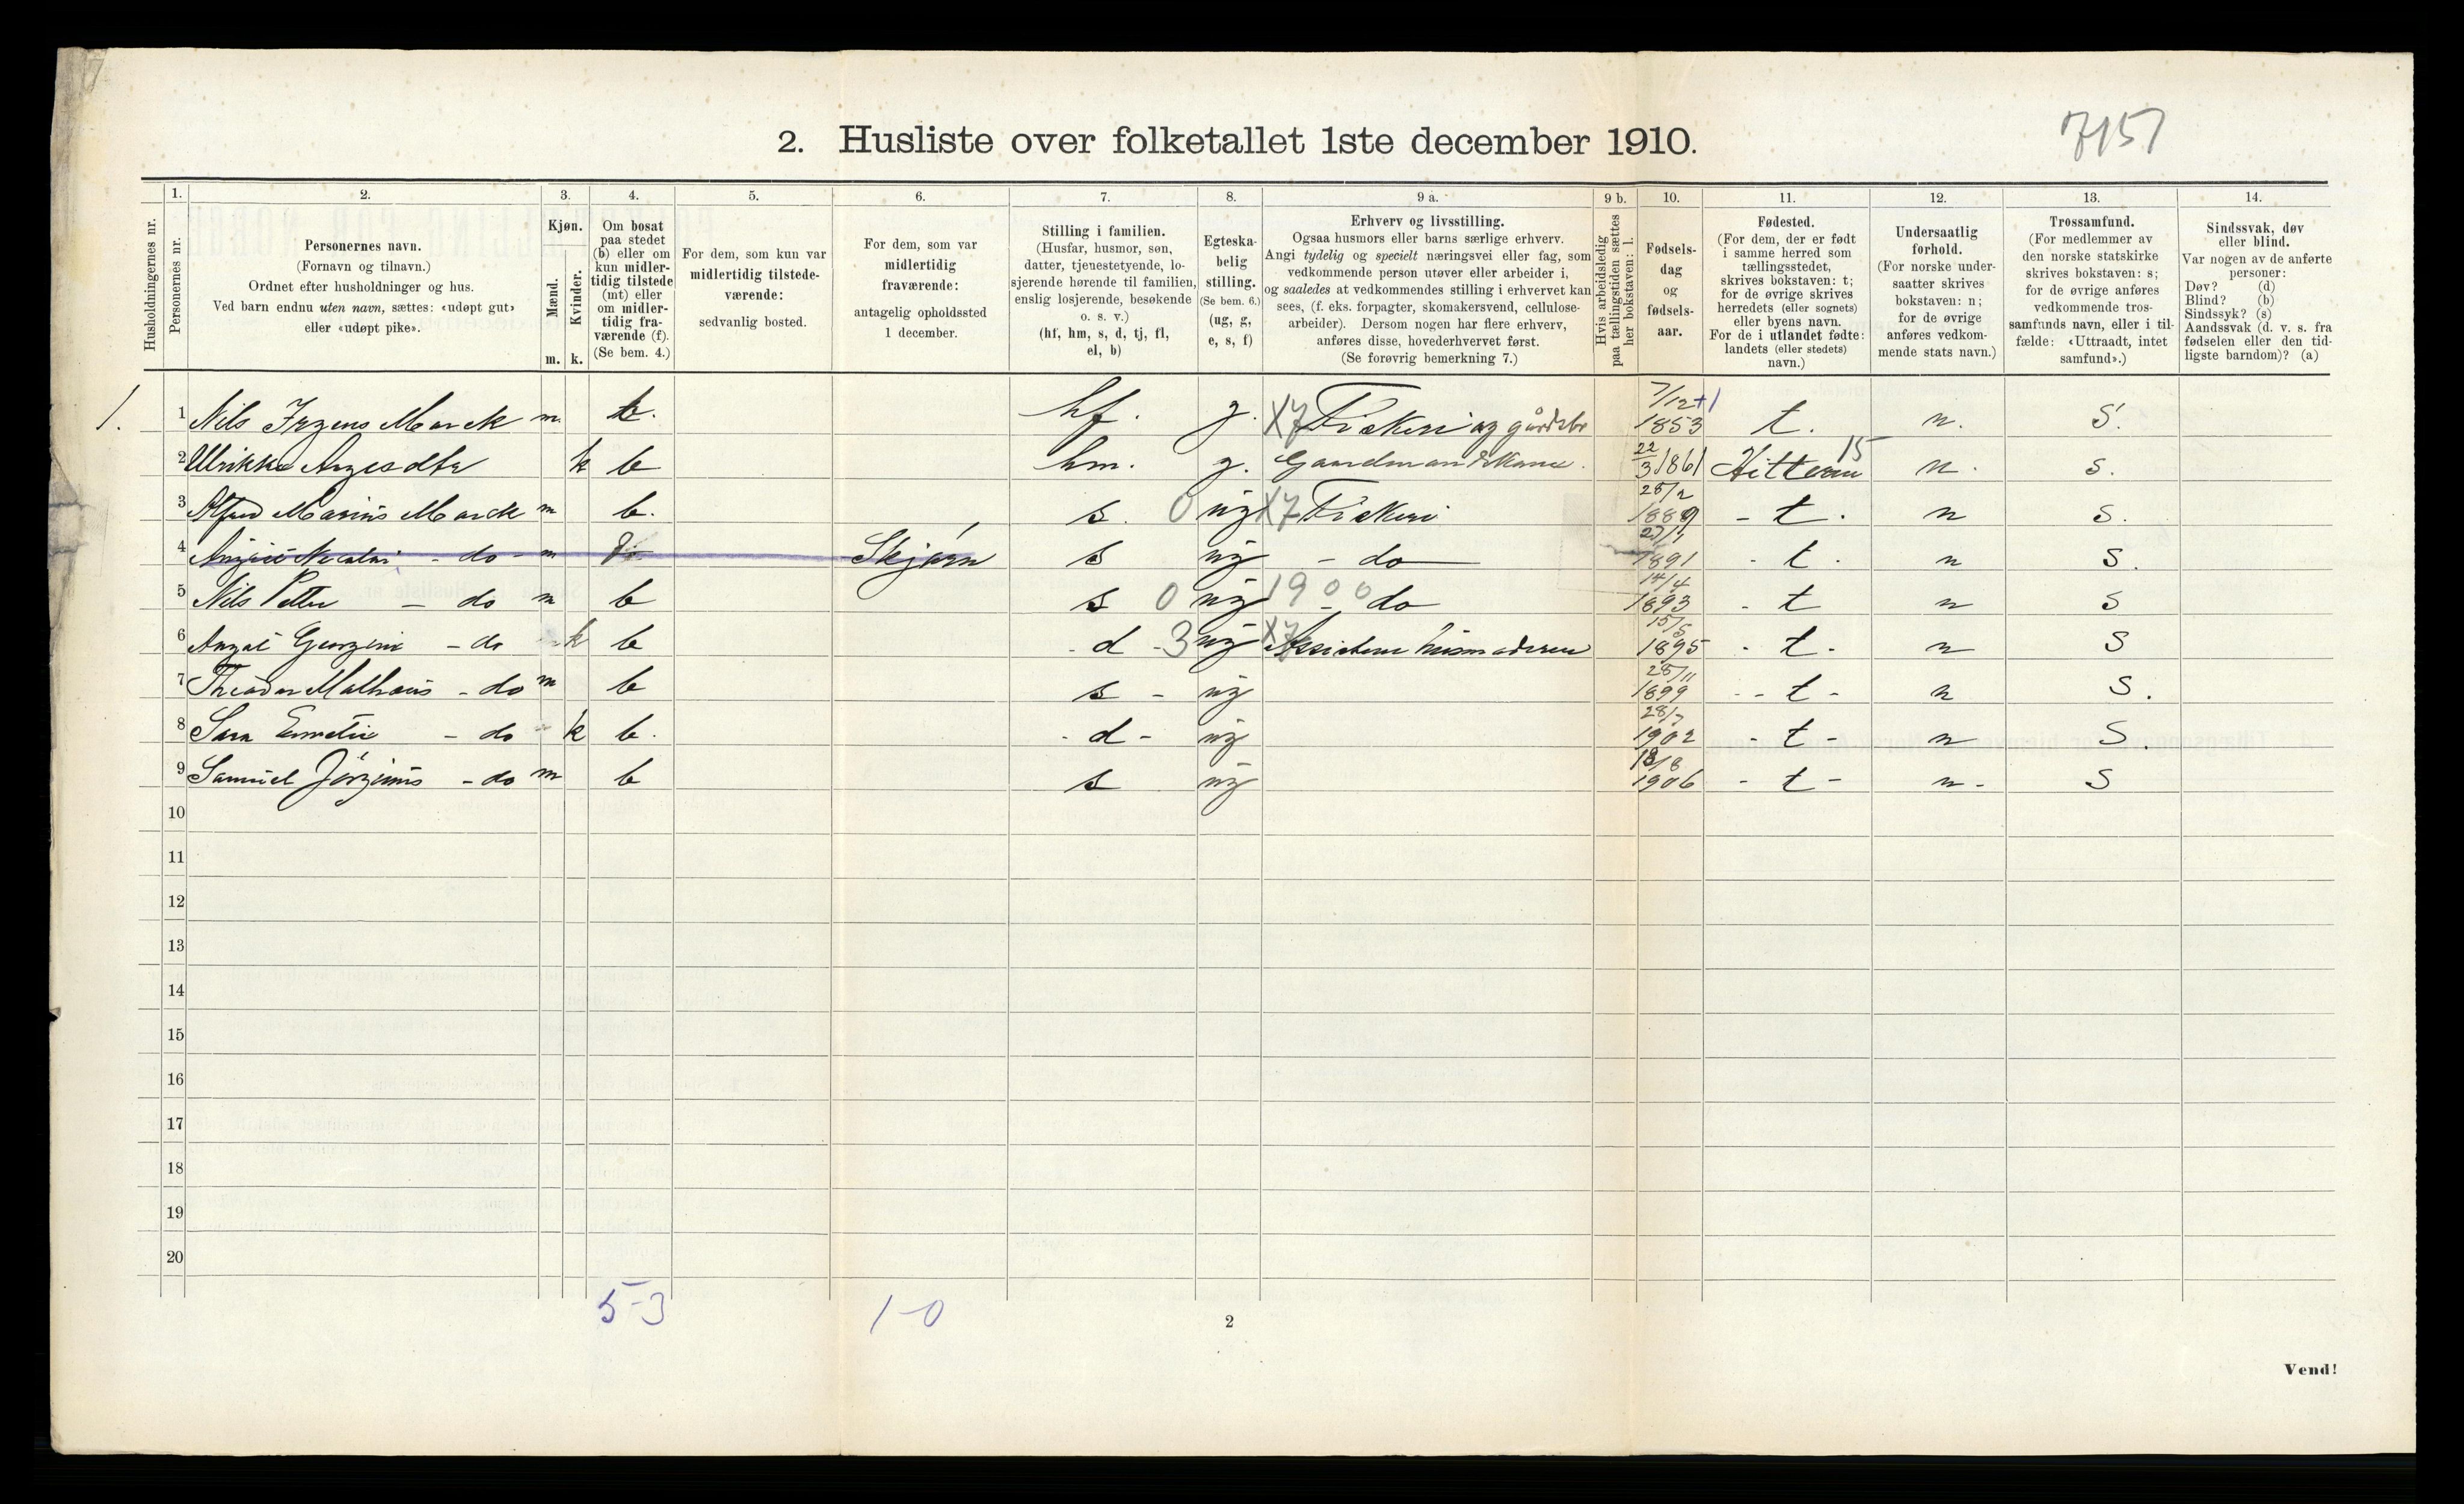 7157
2. Husliste over folketallet 1ste december 1910.
Husholdningernes nr.
1.
Personernes nr.
2.
Personernes navn.
(Fornavn og tilnavn.)
Ordnet efter husholdninger og hus.
Ved barn endnu uten navn, sættes: «udøpt gut»
eller «udøpt pike».
3.
Kjøn.
Mænd.
Kvinder.
m. k.
4.
Om bosat
paa stedet
(b) eller om
kun midler-
tidig tilstede
(mt) eller
om midler-
tidig fra-
værende (f).
(Se bem. 4.)
5.
For dem, som kun var
midlertidig tilstede-
værende:
sedvanlig bosted.
6.
For dem, som var
midlertidig
fraværende:
antagelig opholdssted
1 december.
7.
Stilling i familien.
(Husfar, husmor, søn,
datter, tjenestetyende, lo-
sjerende hørende til familien,
enslig losjerende, besøkende
o. s. v.)
(hf, hm, s, d, tj, fl,
el, b)
8.
Egteska-
belig
stilling.
(Se bem. 6.)
(ug, g,
e, s, f)
9 a.
Erhverv og livsstilling.
Ogsaa husmors eller barns særlige erhverv.
Angi tydelig og specielt næringsvei eller fag, som
vedkommende person utøver eller arbeider i,
og saaledes at vedkommendes stilling i erhvervet kan
sees, (f. eks. forpagter, skomakersvend, cellulose-
arbeider). Dersom nogen har flere erhverv,
anføres disse, hovederhvervet først.
(Se forøvrig bemerkning 7.)
9 b.
Hvis arbeidsledig
paa tællingstiden sættes
her bokstaven: l.
10.
Fødsels-
dag
og
fødsels-
aar.
11.
Fødested.
(For dem, der er født
i samme herred som
tællingsstedet,
skrives bokstaven: t;
for de øvrige skrives
herredets (eller sognets)
eller byens navn.
For de i utlandet fødte:
landets (eller stedets)
navn.)
12.
Undersaatlig
forhold.
(For norske under-
saatter skrives
bokstaven: n;
for de øvrige
anføres vedkom-
mende stats navn.)
13.
Trossamfund.
(For medlemmer av
den norske statskirke
skrives bokstaven: s;
for de øvrige anføres
vedkommende tros-
samfunds navn, eller i til-
fælde: «Uttraadt, intet
samfund».)
14.
Sindssvak, døv
eller blind.
Var nogen av de anførte
personer:
Døv? (d)
Blind? (b)
Sindssyk? (s)
Aandssvak (d. v. s. fra
fødselen eller den tid-
ligste barndom)? (a)
1. 1 Nils Marck m b. hf. g. X7 Fiskeri og gårdsbr 7/12 +1 1853 t. n. S.
2 Ulrikke k b hm. g. Gaardmandskone. 22/3 1861 Hitteren 15 n. s.
3 Alfred Marius Marck m b. s. 0 ug X7 Fiskeri 1889 - t. n s.
4 - do - m Skjørn s ug - do 1891 - t. n s.
5 Nils Petter - do m b s 0 ug 1900 - do 14/4 1893 - t n s
6 - do k b - d - 3 ug X7 Assisterer husmoderen 15/5 1895 - t - n S
7 - do m b s - ug 28/11 1899 - t - n S.
8 Sara - do k b. - d - ug 1902 - t - n S.
9 Samuel - do m b s ug 1906 - t - n - S
10
11
12
13
14
15
16
17
18
19
20
5-3 1-0
2
Vend!